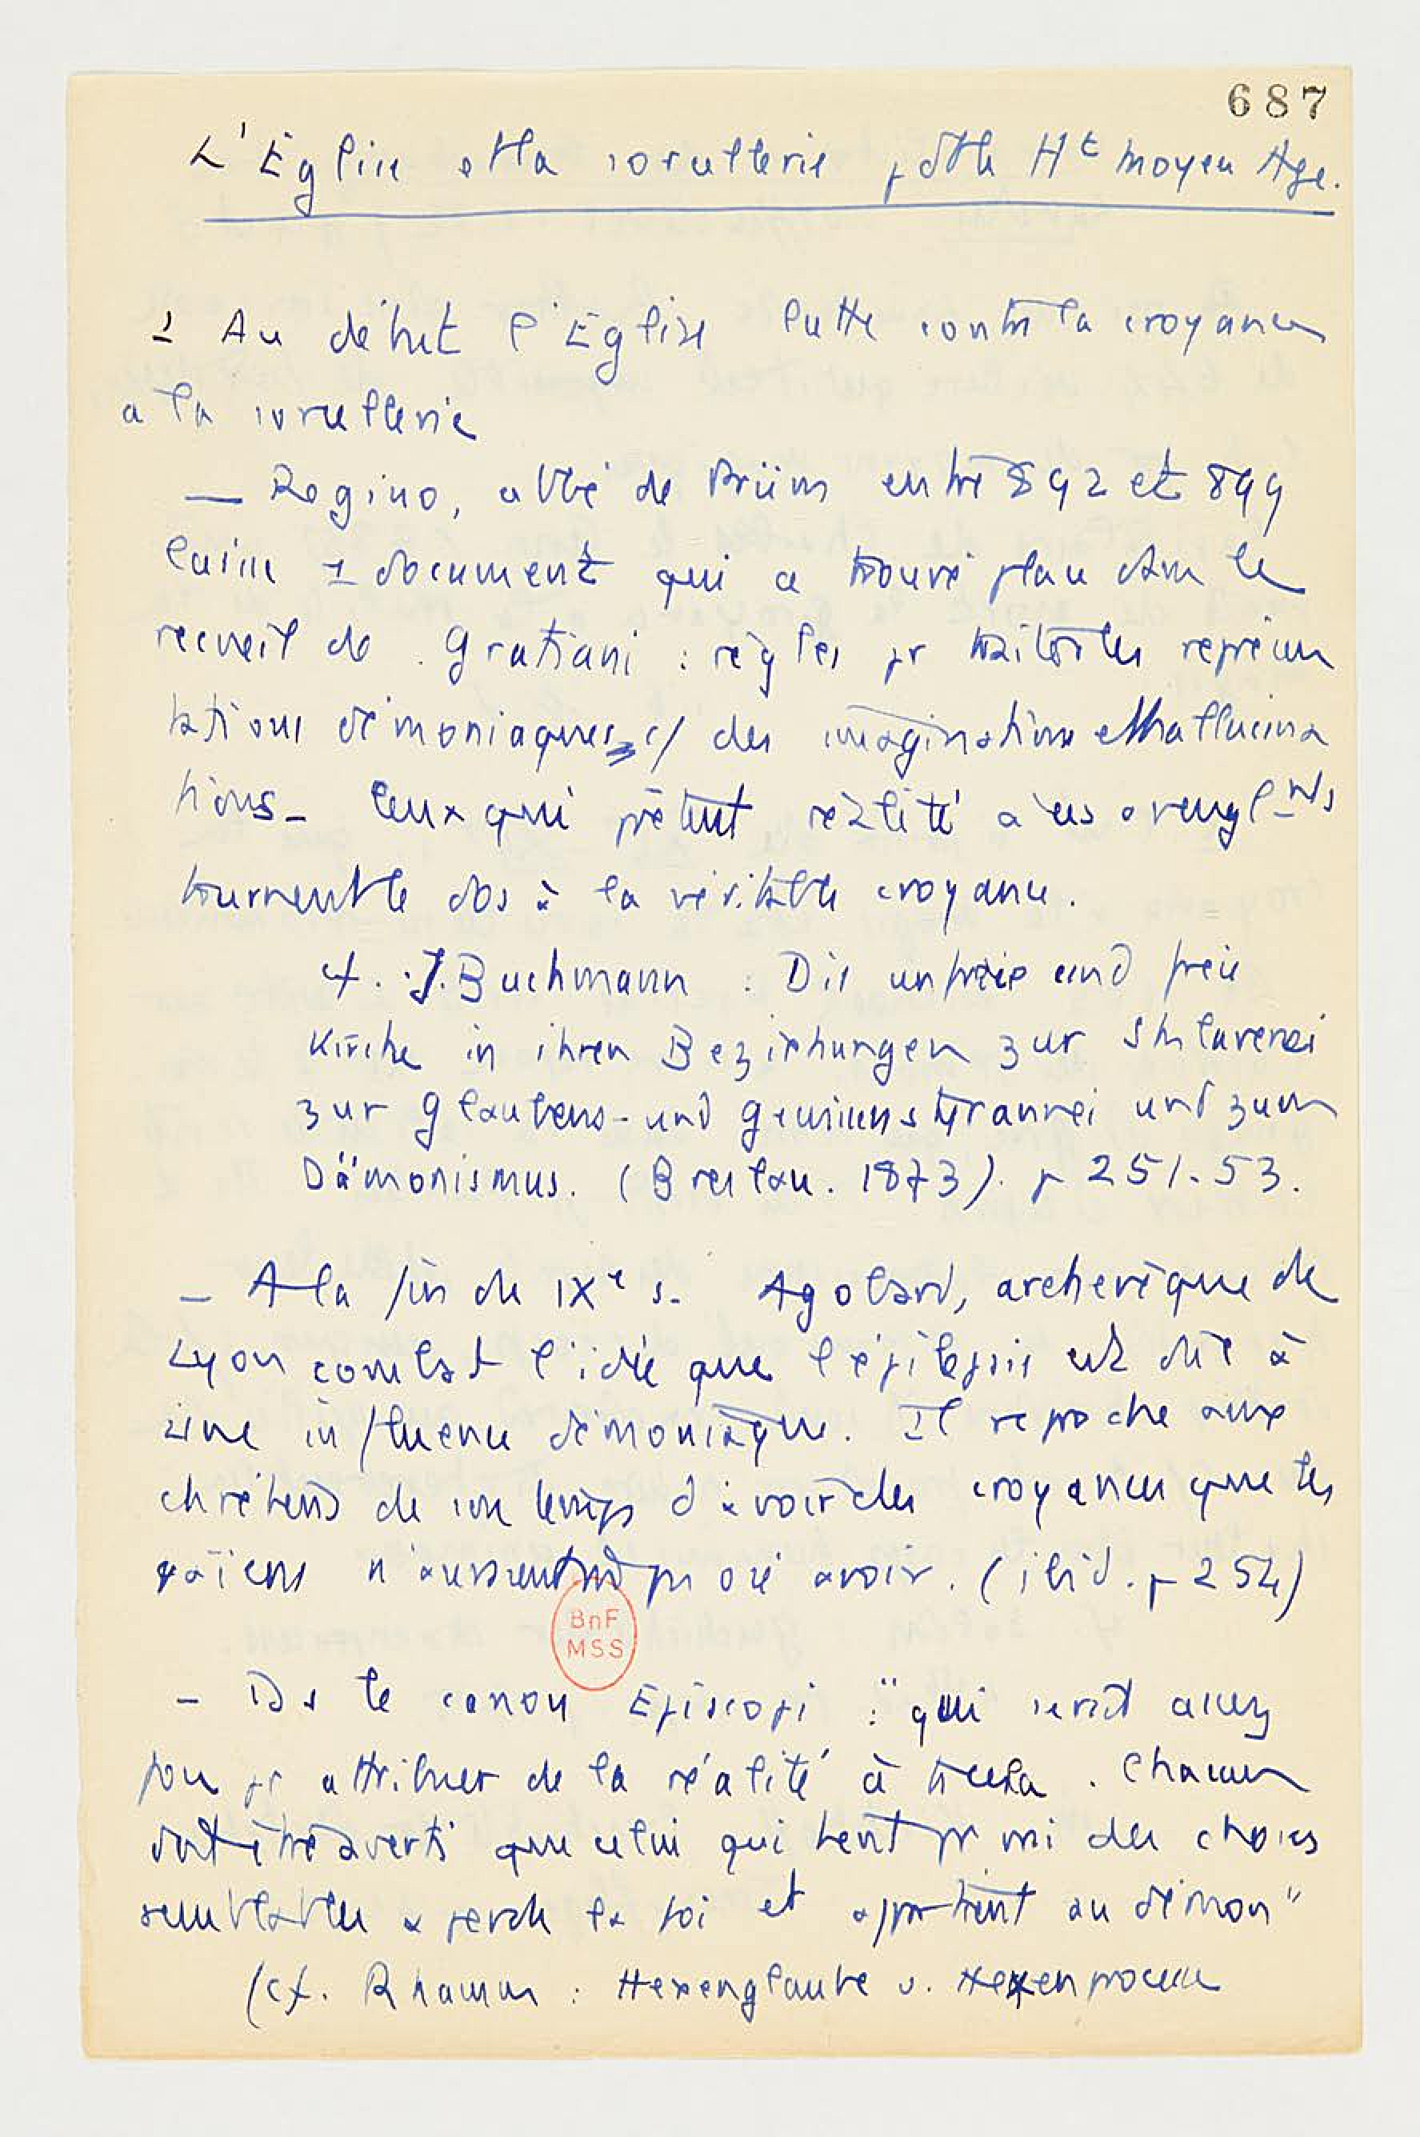 687
L'Église et la sorcellerie pdt le Ht Moyen Age.
1 Au début l'Eglise lutte contre la croyance
a la sorcellerie
— Regino, abbé de Prüm entre 892 et 899
laisse 1 document qui a trouvé place dans le
recueil de Gratiani : règles pr traiter les représen
tations démoniaques c/ des imaginations et hallucina
tions - Ceux qui prêtent réalité à ces aveuglmts
tournent le dos à la véritable croyance.
cf. J. Buchmann : Die unfreie und freie
Kirche in ihren Beziehungen zur Sklaverei
zur Glaubens- und Gewissenstyrannei und zum
Dämonismus. (Breslau. 1873). p 251-53.
- A la fin de IXe s. Agobard, archevêque de
Lyon combat l'idée que l'épilepsie est dûe à
une influence démoniaque. Il reproche aux
chrétiens de son temps d'avoir des croyances que les
païens n'auraient pas osé avoir. (ibid. p 254)
BnF
MSS
- Ds le canon Episcopi : "qui serait assez
fou pr attribuer de la réalité à tt cela. Chacun
doit être averti que celui qui tient pr vrai des choses
semblables a perdu la foi et appartient au démon"
(cf. Rhamm : Hexenglaube u. Hexenprocesse